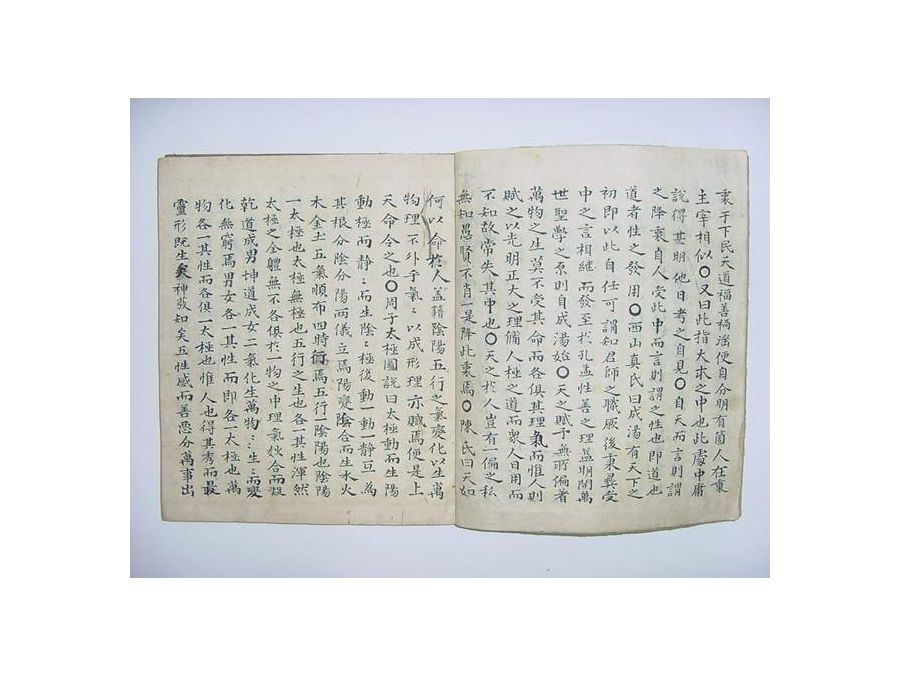 衷于下民天道福善禍淫便自分明有箇人在裏
主宰相似〇又曰此指大本之中也此處中庸
說得甚明他日考之自見〇自天而言則謂
之降衷自人受此中而言則謂之性也即道也
道者性之發用〇西山真氏曰成湯有天下之
初即以此自任可謂知君師之職厥後秉彝受
中之言相繼而發至於孔孟性善之理益明開萬
世聖學之原則自成湯始〇天之賦予無所偏者
萬物之生莫不受其命而各俱其理氣而惟人則
賦之以光明正大之理備人極之道而衆人日用而
不知故常失其中也〇天之於人豈有一偏之私
無知愚賢不肖一是降此衷焉〇陳氏曰天如
何以命於人盖籍陰陽五行之氣變化以生萬
物理不外乎氣〻以成形理亦賦焉便是上
天命令之也〇周子太極圖說曰太極動而生陽
動極而静〻而生陰〻極後動一動一静互爲
其根分陰分陽两儀立焉陽變陰合而生水火
木金土五氣順布四時行焉五行一陰陽也陰陽
一太極也太極無極也五行之生也各一其性渾然
太極之全軆無不各俱於一物之中理氣妙合而凝
乾道成男坤道成女二氣化生萬物〻生〻而變
化無窮焉男女各一其性而即各一太極也萬
物各一其性而各俱一太極也惟人也得其秀而最
靈形既生矣神發知矣五性感而善惡分萬事出